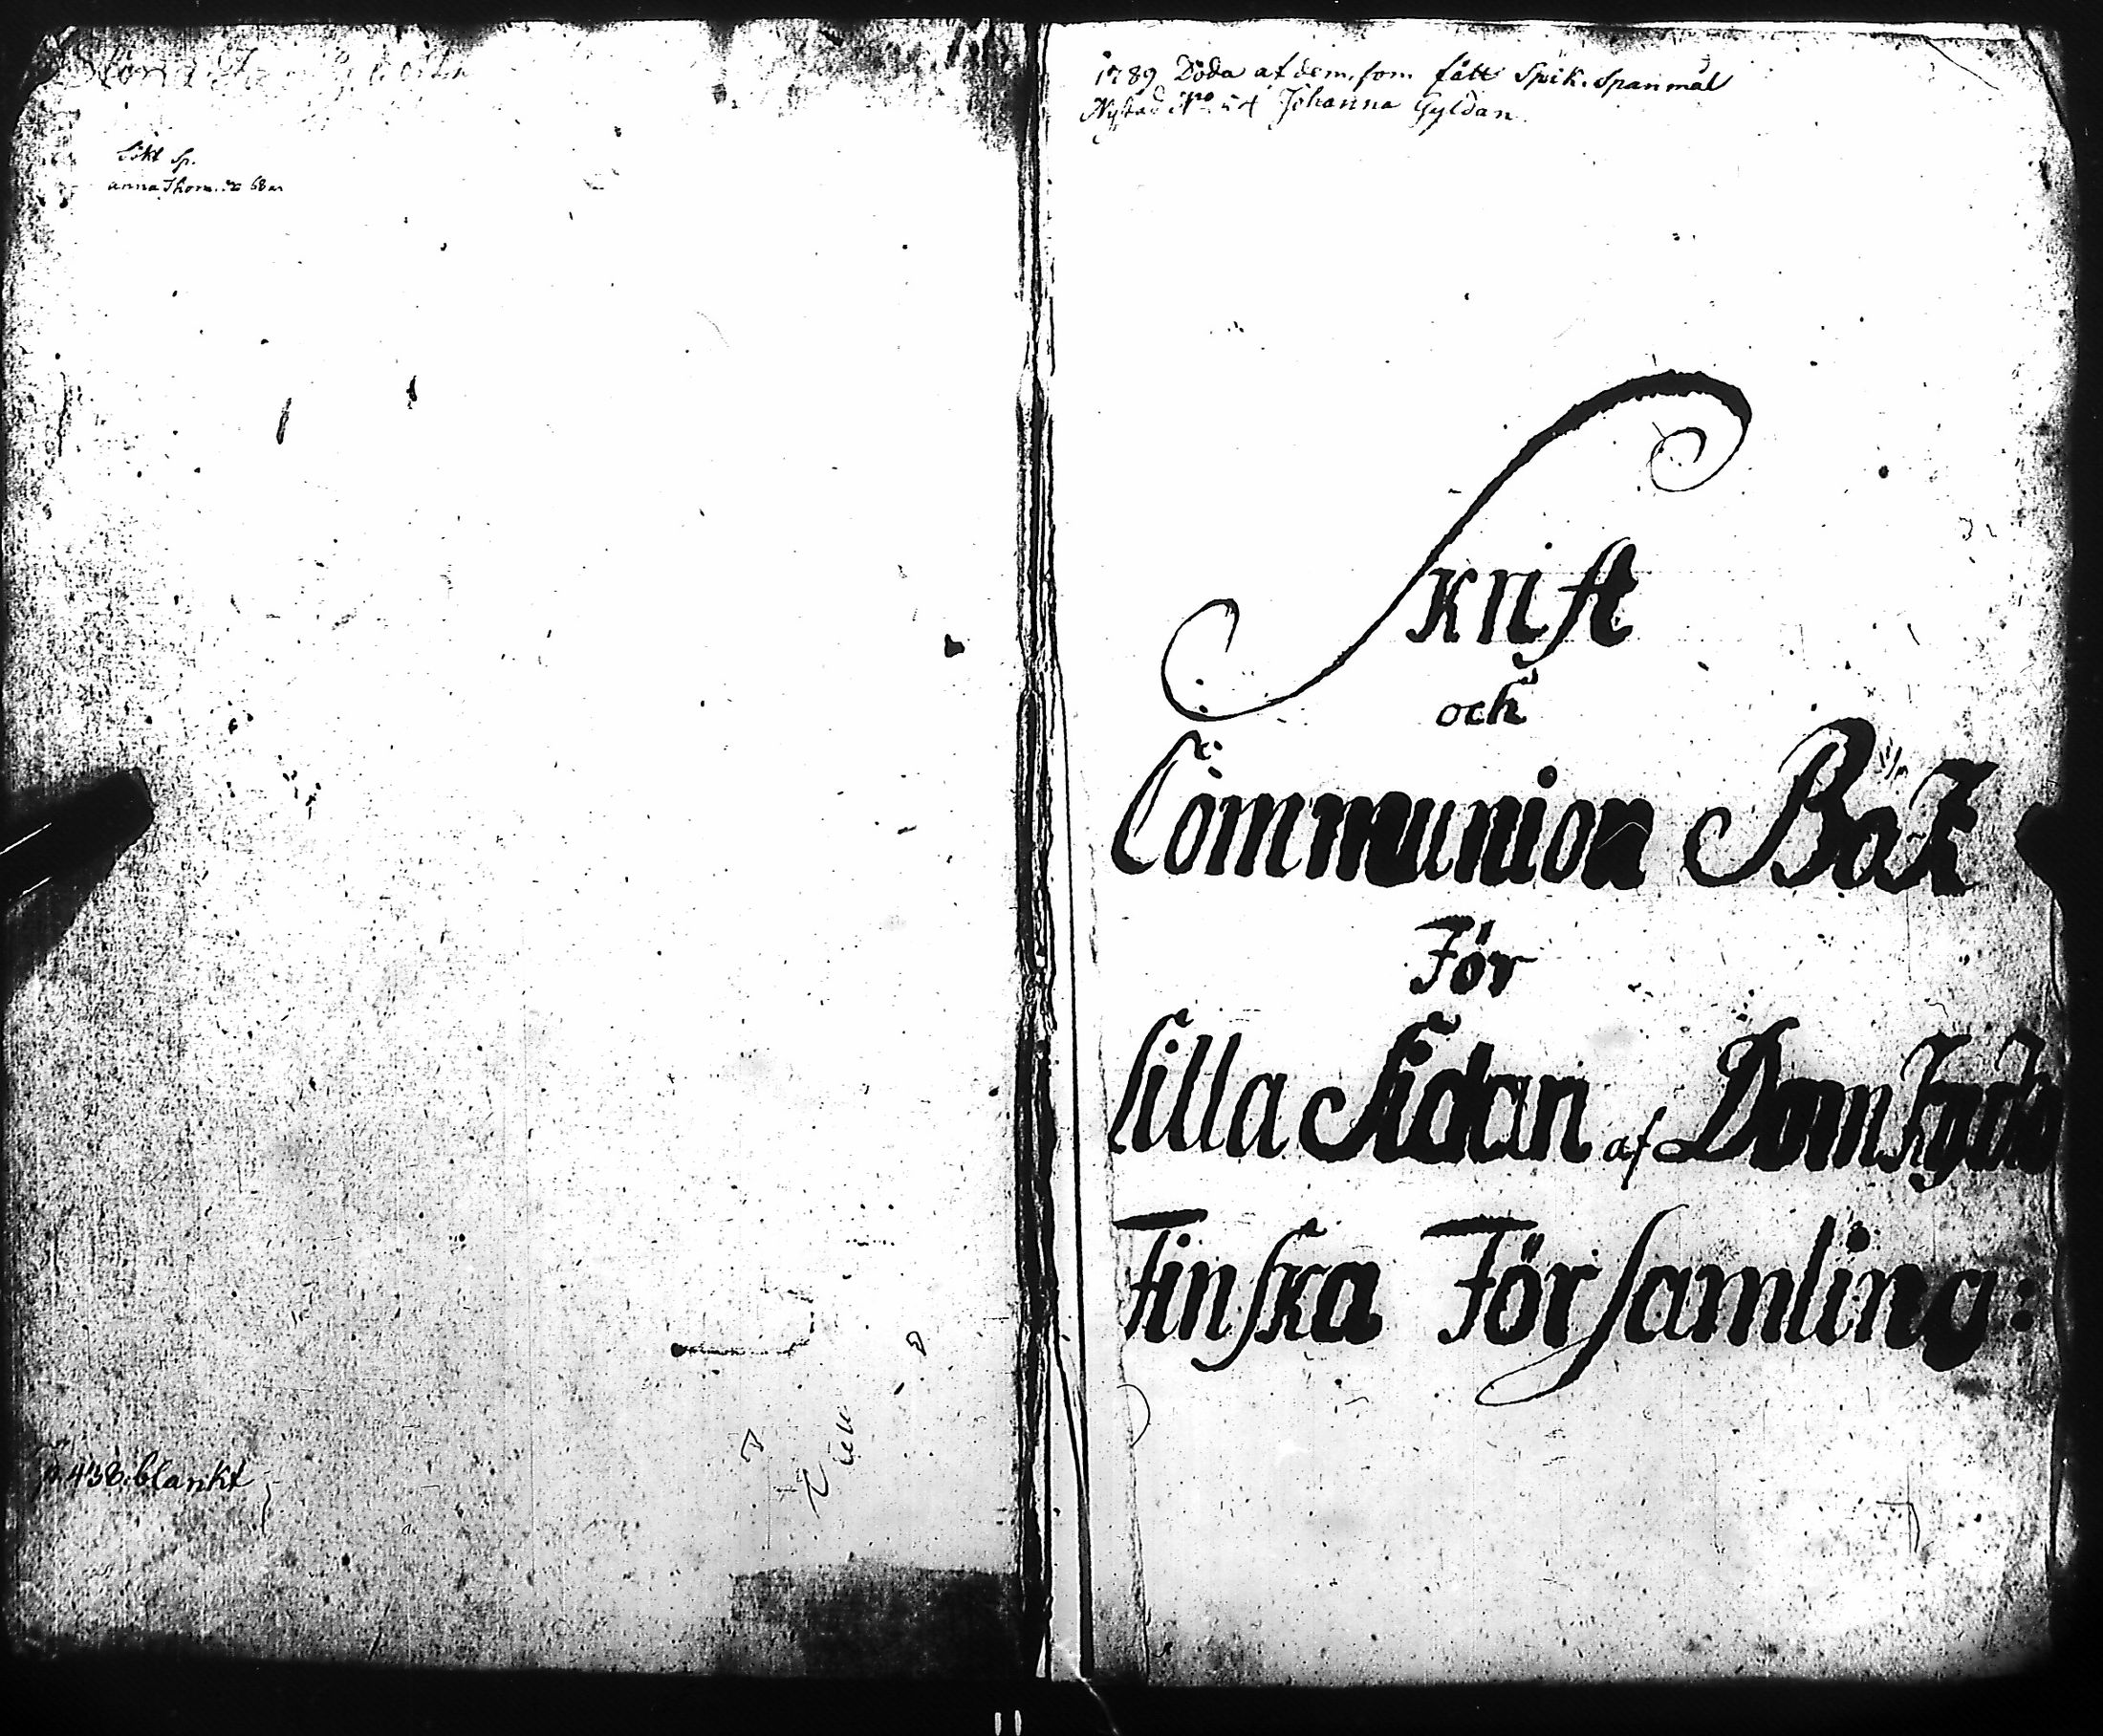 anna Thom.
p. 438. blankt
1789 Döda af dem, som fått Spik. Spanmål
Nystad No 54 Johanna Gyldan.
Skrift
och
Communion Bok
För
Lilla Sidan af DomKyrko
Finska Församling: